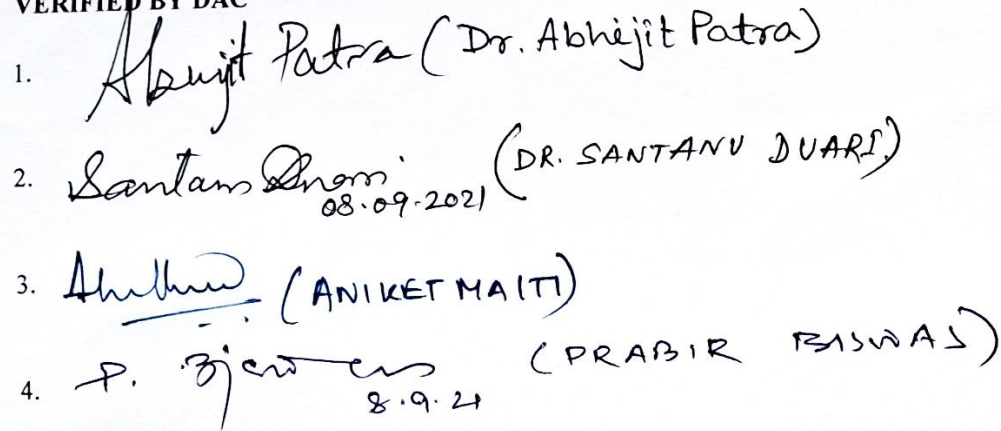 VERIFIED BY DAC
1. Abhijit Patra (Dr. Abhijit Patra)
2. Santanu Duari 08.09.2021 (DR. SANTANU DUARI)
3. (ANIKET MAITI)
4. P. Biswas 8.9.21 (PRABIR BISWAS)